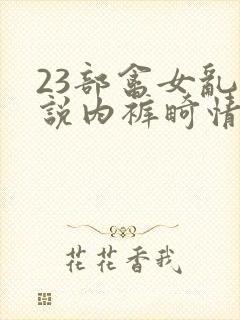 23部畲女乱
說内裤畸情
花花香我